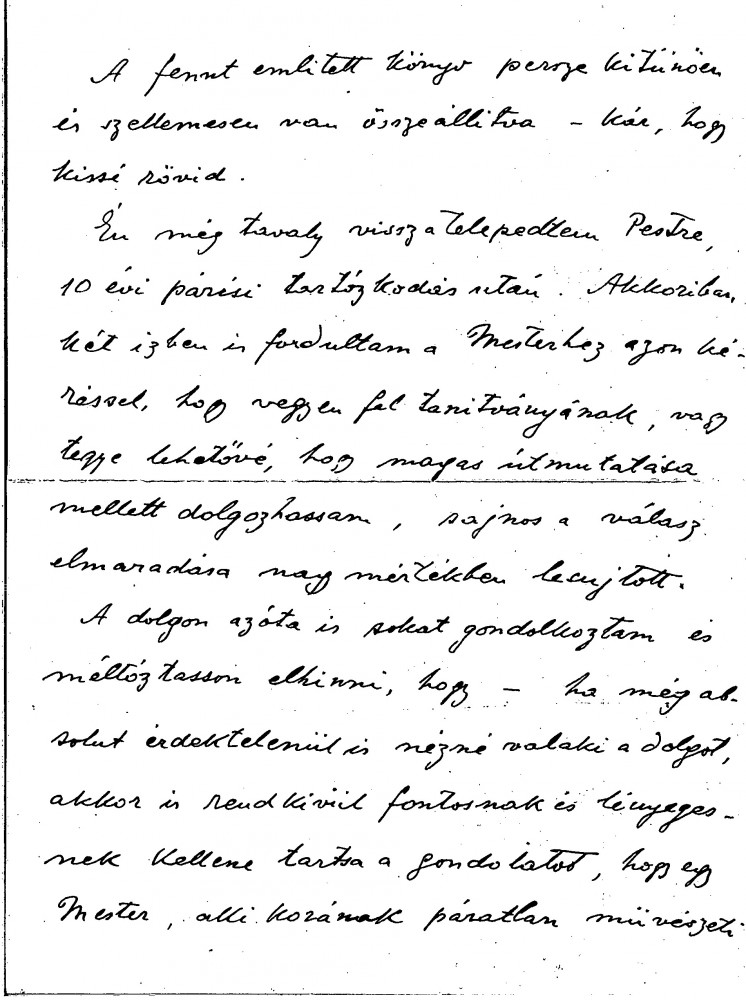 A fennt emlitett könyv persze kitünöen
és szellemesen van összeállitva – kár, hogy
kissé rövid.
Én még tavaly visszatelepedtem Pestre,
10 évi párisi tartózkodás után. Akkoriban,
két izben is fordultam a Mesterhez azon ké-
réssel, hogy vegyen fel tanitványának, vagy
tegye lehetővé, hogy magas útmutatása
mellett dolgozhassam, sajnos a válasz
elmaradása nagy mértékben lesujtott.
A dolgon azóta is sokat gondolkoztam és
méltóztasson elhinni, hogy – ha még ab-
solut érdektelenül is nézné valaki a dolgot,
akkor is rendkivül fontosnak és lényeges-
nek kellene tartsa a gondolatot, hogy egy
Mester, aki korának páratlan müvészeti